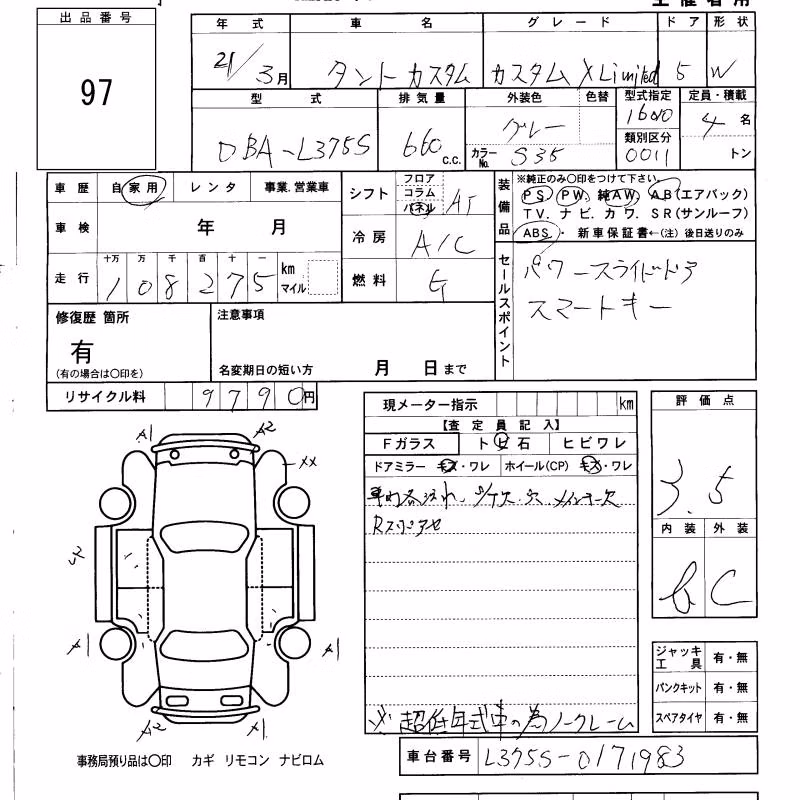 出品番号
97
年式 車名 グレード ドア 形状
21/3月 タントカスタム カスタムXLimited 5 W
型式 排気量 外装色 色替 型式指定 定員・積載
DBA-L375S 660 c.c. グレー 4名
カラーNo. S35 類別区分 0011 トン
車歴 自家用 レンタ 事業.営業車
シフト フロア コラム パネル AT
装備品 ※純正のみ〇印をつけて下さい。
PS. PW. 純AW. AB(エアバック)
TV. ナビ. カワ. SR(サンルーフ)
ABS・新車保証書←(注)後日送りのみ
車検 年 月
冷房 A/C
走行 十万 万 千 百 十 一
108275 km マイル
燃料 G
セールスポイント パワースライドドア
スマートキー
修復歴 箇所
有
(有の場合は〇印を)
注意事項
名変期日の短い方 月 日まで
リサイクル料 9790円
現メーター指示 km
【査定員記入】
Fガラス トビ石 ヒビワレ
ドアミラー キズ・ワレ ホイール(CP) キズ・ワレ
Rスピーカ
※ 超低年式車の為ノークレーム
評価点
3.5
内装 外装
b C
ジャッキ工具 有・無
パンクキット 有・無
スペアタイヤ 有・無
A1 A2
XX
A1 A1
A2 X1
事務局預り品は〇印 カギ リモコン ナビロム
車台番号 L375S-0171983